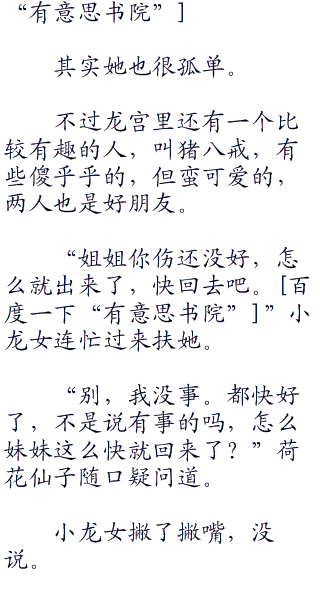 “有意思书院”]
其实她也很孤单。
不过龙宫里还有一个比
较有趣的人，叫猪八戒，有
些傻乎乎的，但蛮可爱的，
两人也是好朋友。
“姐姐你伤还没好，怎
么就出来了，快回去吧。[百
度一下“有意思书院”]”小
龙女连忙过来扶她。
“别，我没事。都快好
了，不是说有事的吗，怎么
妹妹这么快就回来了？”荷
花仙子随口疑问道。
小龙女撇了撇嘴，没
说。